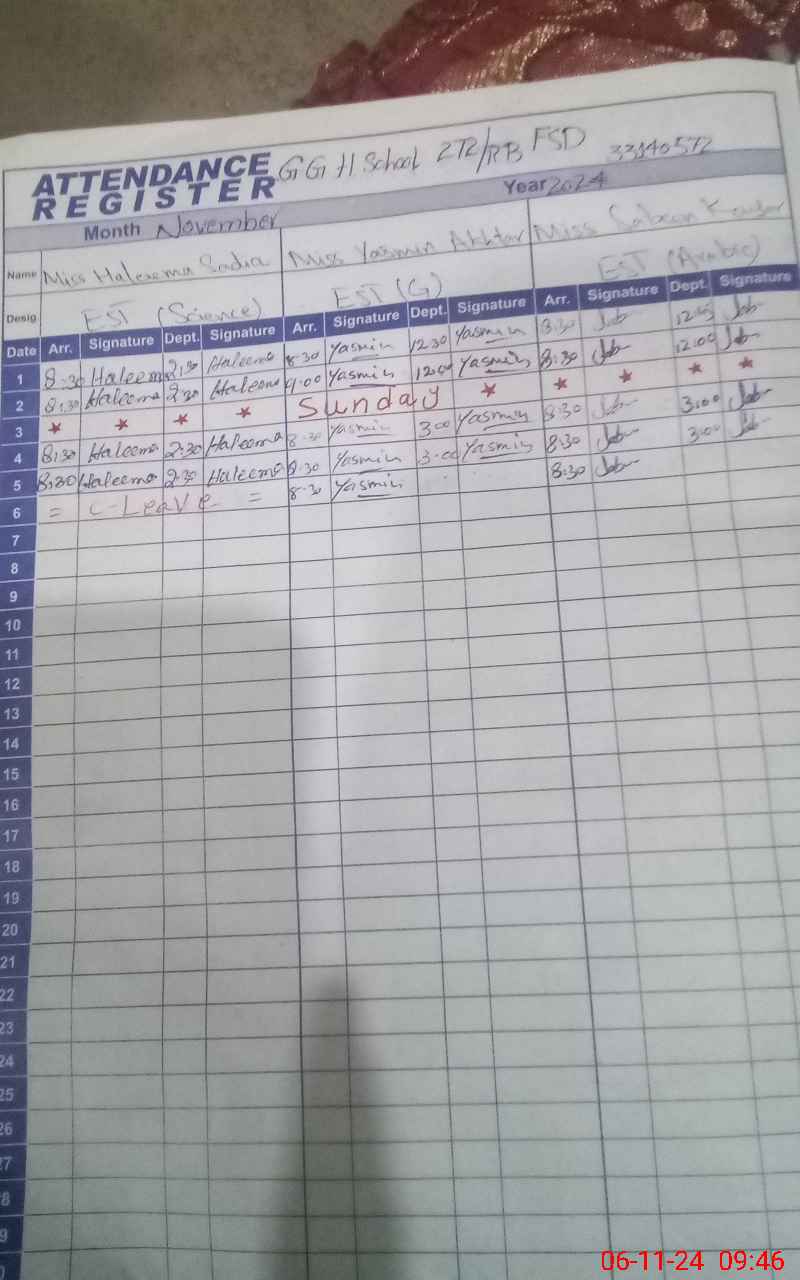 ATTENDANCE REGISTER GGH School 272/RB FSD 33140572
Month November Year 2024
Name Miss Haleema Sadia Miss Yasmin Akhtar Miss
Desig. EST (Science) EST (G) EST (Arabic)
Date Arr. Signature Dept. Signature Arr. Signature Dept. Signature Arr. Signature Dept. Signature
1 8:30 Haleema 2:30 Haleema 8:30 Yasmin 12:30 Yasmin 8:30
2 8:30 Haleema 2:30 Haleema 9:00 Yasmin 12:00 Yasmin 8:30 12:00
3 ★ ★ ★ ★ Sunday ★ ★ ★ ★ ★
4 8:30 Haleema 2:30 Haleema 8:30 Yasmin 3:00 Yasmin 8:30 3:00
5 8:30 Haleema 2:30 Haleema 8:30 Yasmin 3:00 Yasmin 8:30 3:00
6 = C-Leave = 8:30 Yasmin 8:30
7
8
9
10
11
12
13
14
15
16
17
18
19
20
21
22
23
24
25
26
27
8
9
0
06-11-24 09:46